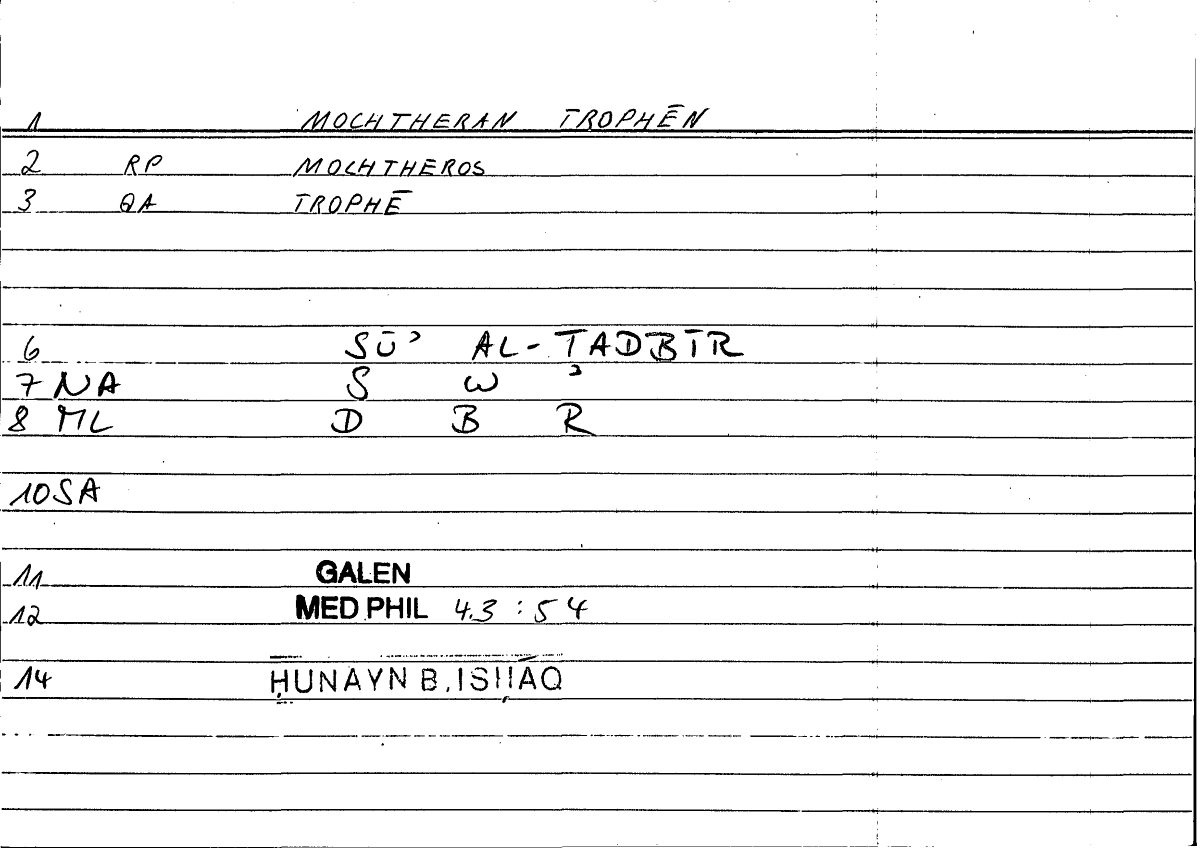 1 MOCHTHERAN TROPHĒN
2 RP MOCHTHEROS
3 QA TROPHĒ
6 SŪʾ AL-TADBĪR
7 NA S W ʾ
8 ML D B R
10 SA
11 GALEN
12 MED.PHIL 4.3 : 54
14 ḤUNAYN B. ISḤĀQ